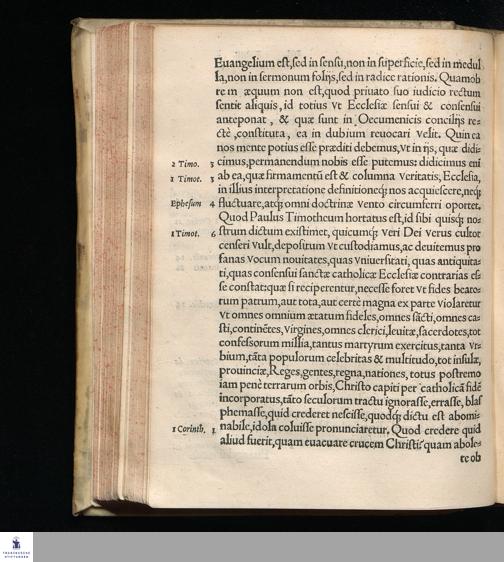 Euangelium est,sed in sensu,non in superficie,sed in medul
la,non in sermonum folijs,sed in radice rationis. Quamob
rem æquum non est,quod priuato suo iudicio rectum
sentit aliquis, id totius vt Ecclesiæ sensui & consensui
anteponat, & quæ sunt in Oecumenicis concilijs re-
ctè constituta, ea in dubium reuocari velit. Quin ea
nos mente potius esse præditi debemus, vt in ijs, quæ didi-
2 Timo. 3 cimus,permanendum nobis esse putemus: didicimus eni
1 Timot. 3 ab ea,quæ firmamentũ est & columna veritatis, Ecclesia,
in illius interpretatione definitioneq́; nos acquiescere,neq́;
Ephesium 4 fluctuare,atq́; omni doctrinæ vento circumferri oportet.
Quod Paulus Timotheum hortatus est,id sibi quisq́; no-
1 Timot. 6 strum dictum existimet, quicumq́; veri Dei verus cultor
censeri vult,depositum vt custodiamus,ac deuitemus pro
fanas vocum nouitates,quas vniuersitati, quas antiquita-
ti,quas consensui sanctæ catholicæ Ecclesiæ contrarias es-
se constat:quæ si reciperentur,necesse foret vt fides beato-
rum patrum,aut tota,aut certè magna ex parte violaretur
vt omnes omnium ætatum fideles,omnes sãcti,omnes ca-
sti,continẽtes,virgines,omnes clerici,leuitæ,sacerdotes,tot
confessorum millia,tantus martyrum exercitus,tanta vr-
bium,tãta populorum celebritas & multitudo,tot insulæ,
prouinciæ,Reges,gentes,regna,nationes, totus postremo
iam penè terrarum orbis,Christo capiti per catholicã fidẽ
incorporatus,tãto seculorum tractu ignorasse,errasse, blas
phemasse,quid crederet nescisse,quodq́; dictu est abomi-
1 Corinth. 1 nabile,idola coluisse pronunciaretur. Quod credere quid
aliud fuerit,quam euacuare crucem Christi? quam abole-
re ob